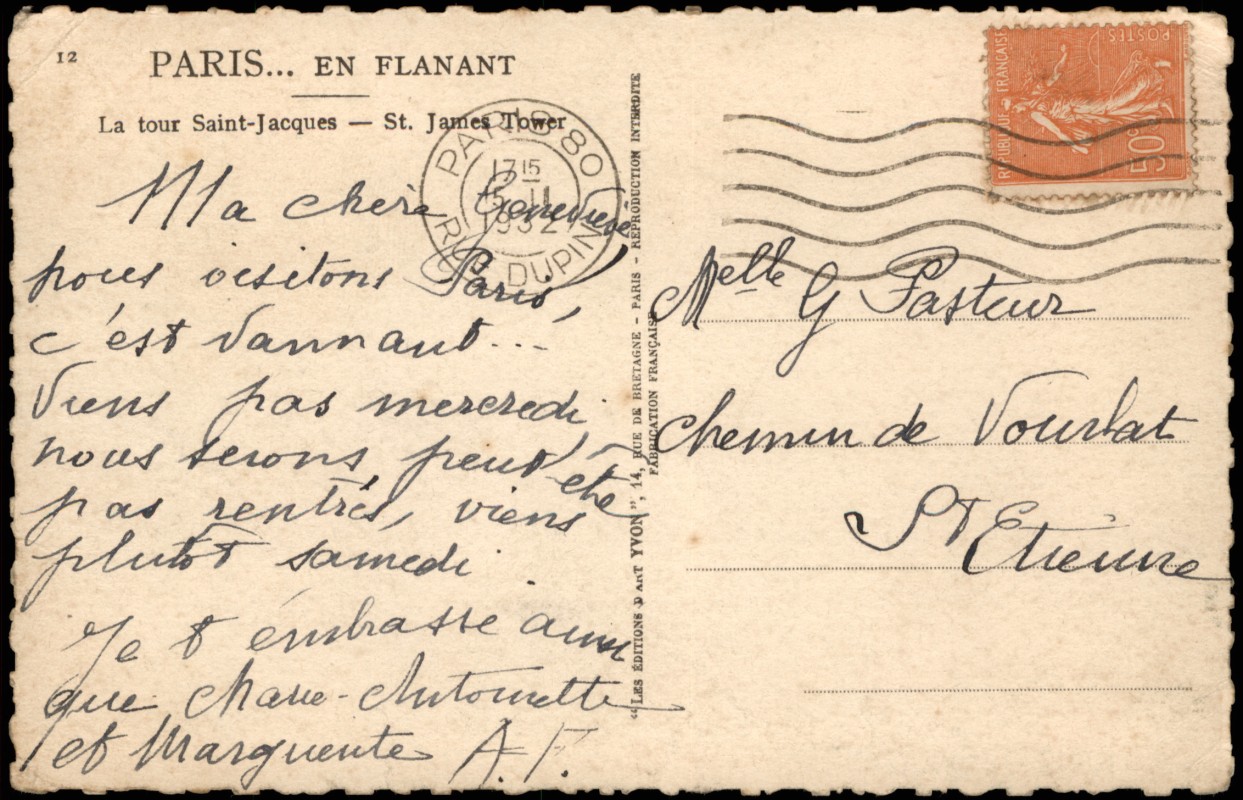 12
PARIS... EN FLANANT
La tour Saint-Jacques — St. James Tower
Ma chère Geneviève
nous visitons Paris,
c'est vannant...
Viens pas mercredi
nous serons peut être
pas rentrés, viens
plutôt samedi.
Je t'embrasse ainsi
que Marie-Antoinette
et Marguerite A. F.
PARIS 80
17 15
15 II
1932
RUE DUPIN
"LES ÉDITIONS D'ART YVON", 14, RUE DE BRETAGNE - PARIS - REPRODUCTION INTERDITE
FABRICATION FRANÇAISE
RÉPUBLIQUE FRANÇAISE
POSTES
50c
Melle G Pasteur
chemin de Vourlat
St Etienne